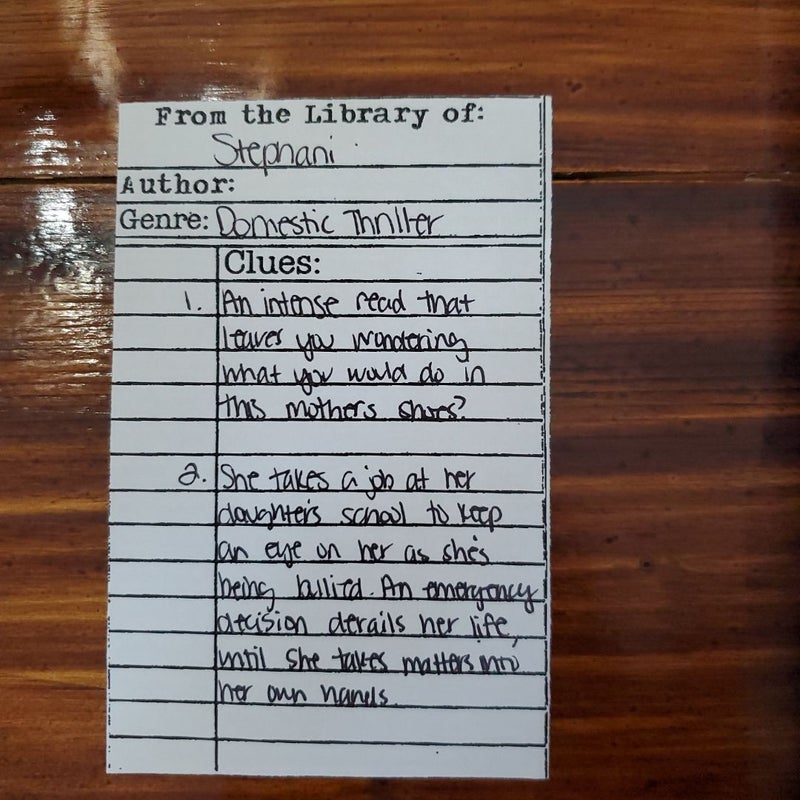 From the Library of:
Stephani
Author:
Genre: Domestic Thriller
Clues:
1. An intense read that
leaves you wondering
what you would do in
this mothers shoes?
2. She takes a job at her
daughter's school to keep
an eye on her as she's
being bullied. An emergency
decision derails her life,
until she takes matters into
her own hands.